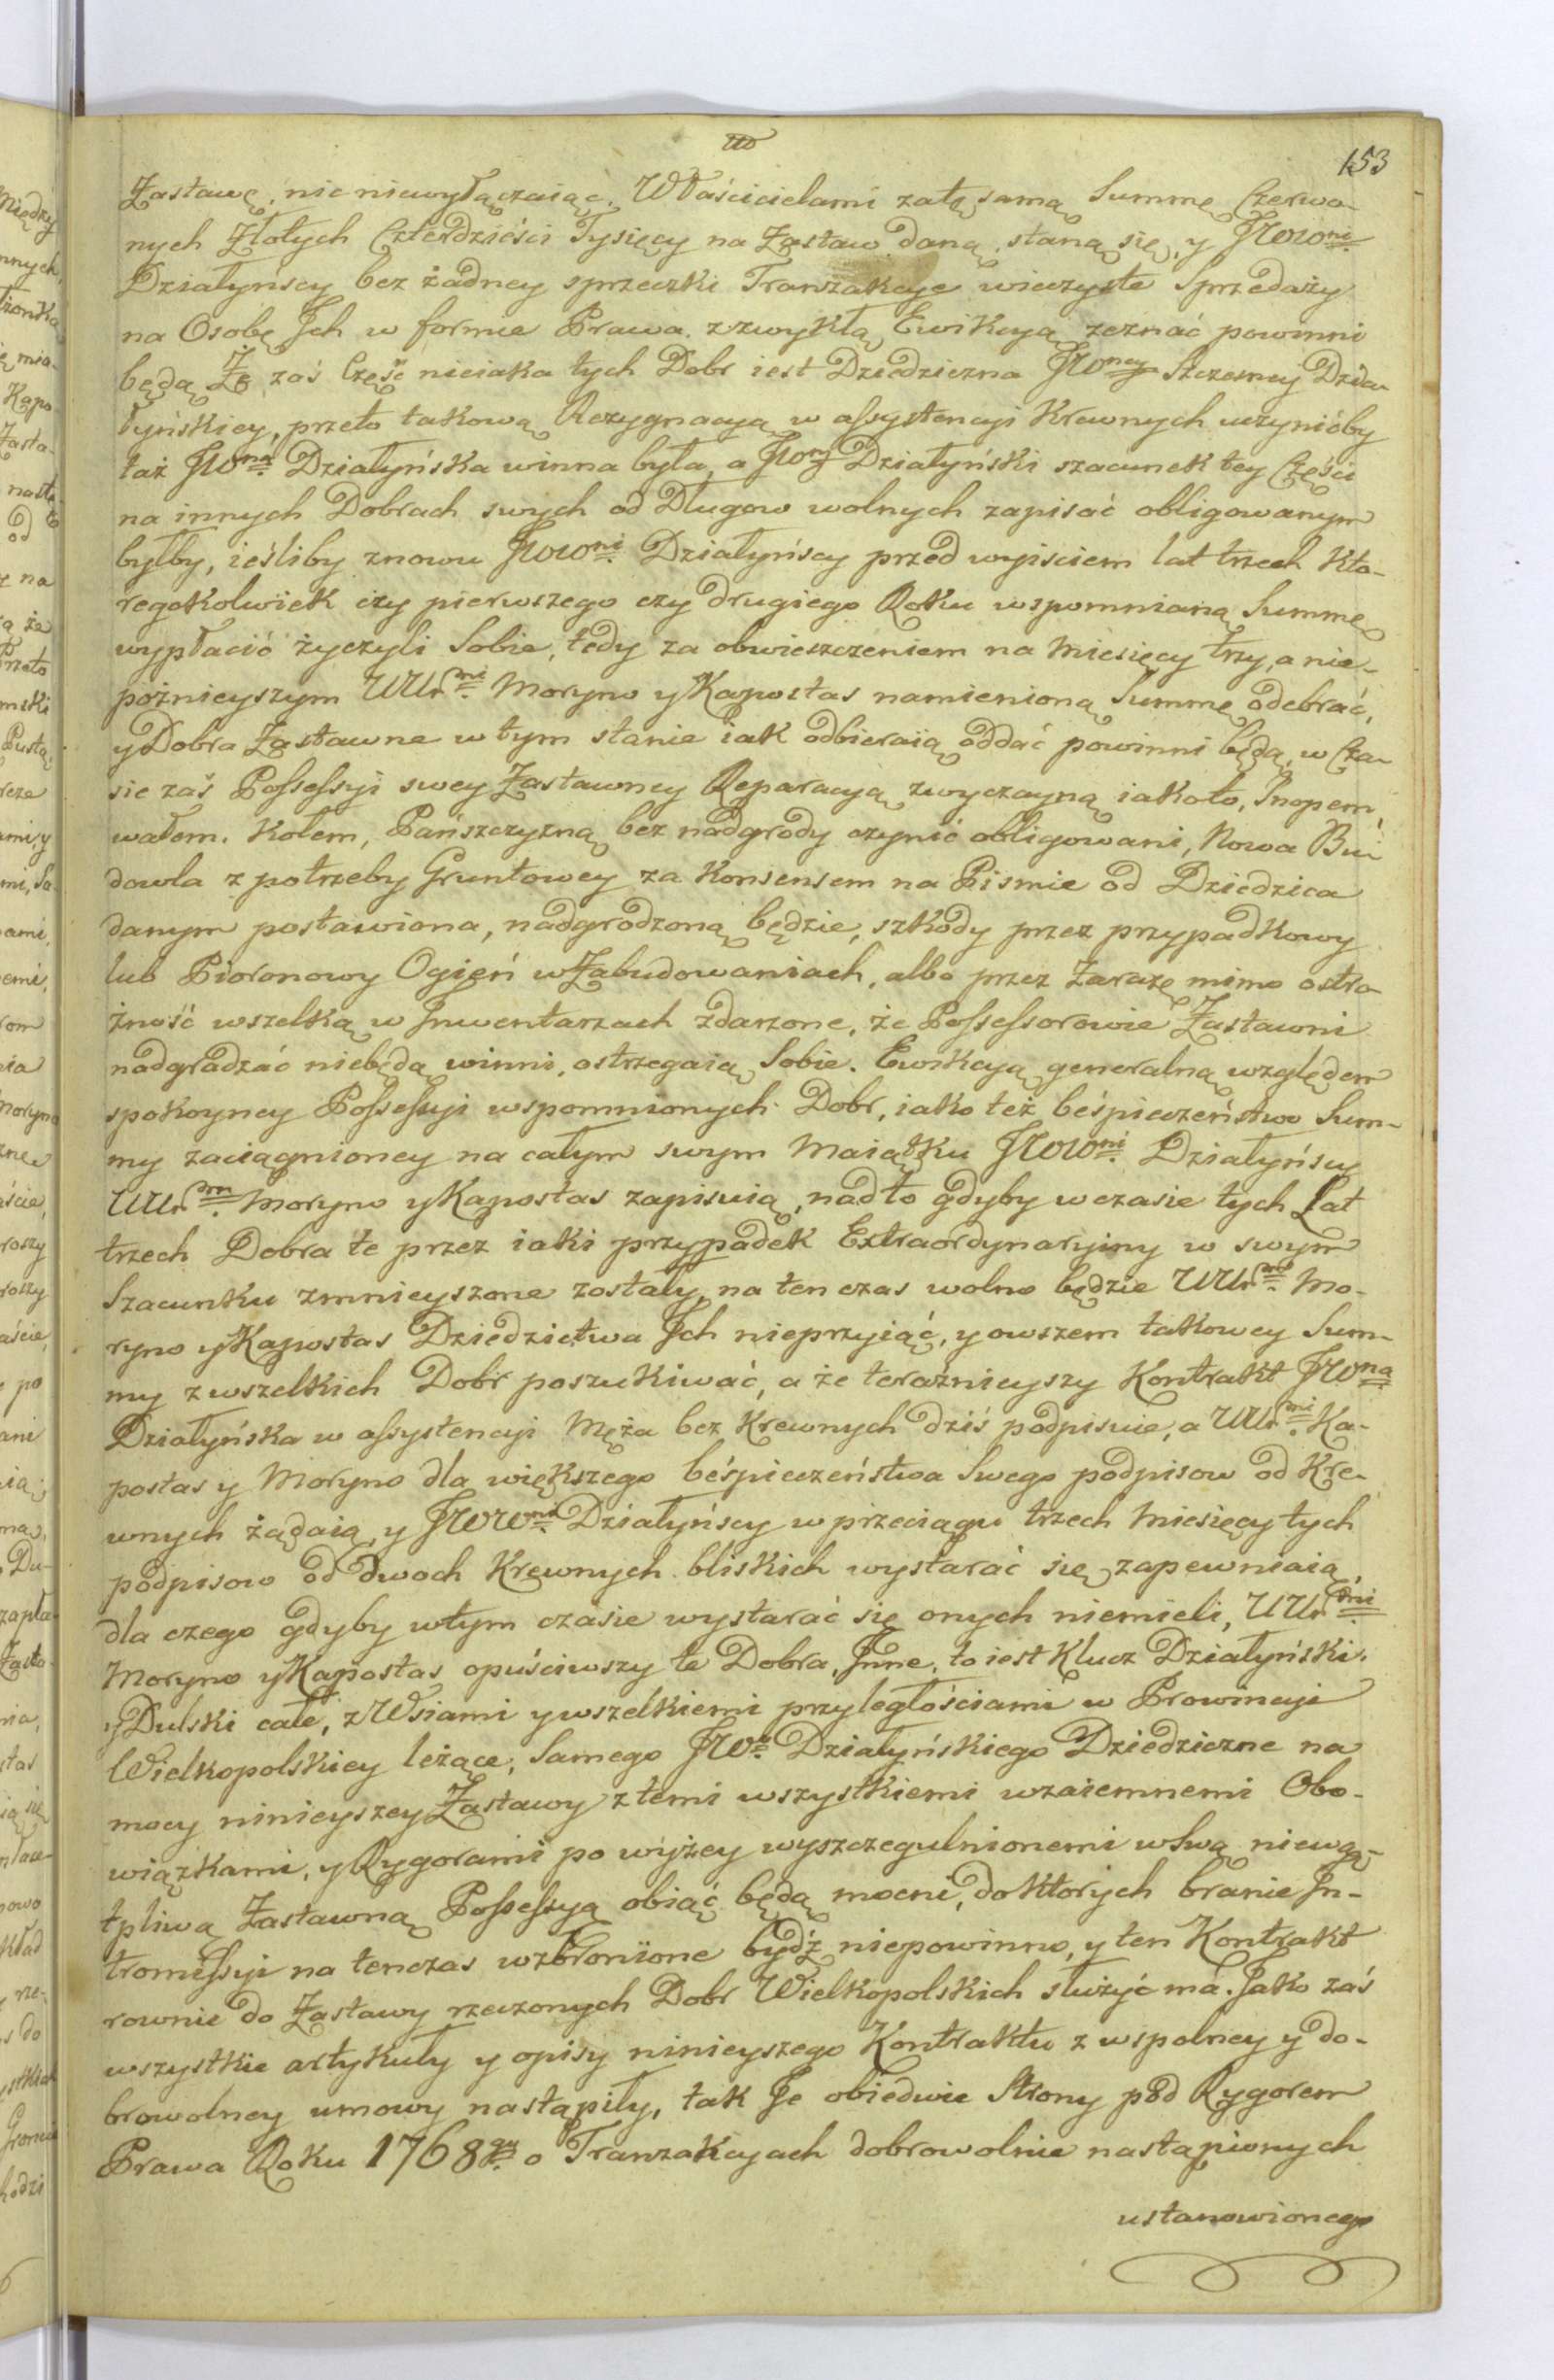 153
Zastawę, nic niewyłączaiąc. Właścicielami zatę samą Summę Czerwo-
nych Złotych Czterdzieści Tysięcy na Zastaw daną, staną się, y JWW<sup>ni</sup>
Działyńscy bez żadney sprzeczki Tranzakcye wieczyste Sprzedaży
na Osobę Jch w formie Prawa zzwykłą Ewikcyą zeznać powinni
będą Że zaś Część nieiaka tych Dobr iest Dziedziczna JW<sup>oney</sup> Szczesney Dzia-
łyńskiey, przeto takową Rezygnacyą w assystencyi Krewnych uczynićby
taż JW<sup>na</sup> Działyńska winna była, a JW<sup>ny</sup> Działyński szacunek tey Części
na innych Dobrach swych od Długow wolnych zapisać obligowanym
byłby, ieśliby znowu JWW<sup>ni</sup> Działyńscy przed wyisciem lat trzech Kto-
regokolwiek czy pierwszego czy drugiego Roku wspomnianą Summę
wypłacić życzyli Sobie, tedy za obwieszczeniem na Miesięcy trzy, a nie-
poźnieyszym UUr<sup>ni</sup> Moryno y Kapostas namienioną Summę odebrać,
y Dobra Zastawne w tym stanie iak odbieraią oddać powinni będą, w Cza-
sie zaś Possessyi swey Zastawney Reparacyą zwyczayną iakoto, Snopem,
wałem. Kołem, Pańszczyzną bez nadgrody czynić obligowani, Nowa Bu-
dowla z potrzeby Gruntowey za Konsensem na Pismie od Dziedzica
danym postawiona, nadgrodzoną będzie, szkody przez przypadkowy
lub Pioronowy Ogień w Zabudowaniach, albo przez Zarazę mimo ostro-
żność wszelką w Jnwentarzach zdarzone, że Possessorowie Zastawni
nadgradzać niebędą winni, ostrzegaią Sobie. Ewikcyą generalną względem
spokoyney Possessyi wspomnionych Dobr, iako też beśpieczeństwo Sum-
my zaciągnioney na całym swym Maiątku JWW<sup>ni</sup> Działyńscy
UUr<sup>m</sup> Moryno y Kapostas zapisuią, nadto gdyby w czasie tych Lat
trzech Dobra te przez iaki przypadek Extraordynaryiny w swym
Szacunku zmnieyszone zostały, na ten czas wolno będzie UUr<sup>m</sup> Mo-
ryno y Kapostas Dziedzictwa Jch nieprzyiąć, y owszem takowey Sum-
my zwszelkich Dobr poszukiwać, a że teraźnieyszy Kontrakt JW<sup>na</sup>
Działyńska w assystencyi Męża bez Krewnych dziś podpisuie, a UUr<sup>ni</sup> Ka-
postas y Moryno dla większego beśpieczeństwa Swego podpisow od Kre-
wnych żądaią, y JWW<sup>ni</sup> Działyńscy w przeciągu trzech Miesięcy tych
podpisow od dwoch Krewnych bliskich wystarać się zapewniaią,
dla czego gdyby w tym czasie wystarać się onych niemieli, UUr<sup>ni</sup>
Moryno y Kapostas opuściwszy te Dobra, Jnne, to iest Klucz Działyński.
y Dulski całe, z Wsiami y wszelkiemi przyległościami w Prowincyi
Wielkopolskiey leżące, Samego JW<sup>o</sup> Działyńskiego Dziedziczne na
mocy ninieyszey Zastawy z temi wszystkiemi wzaiemnemi Obo-
wiązkami, y Rygorami po wyżey wyszczegulnionemi w Swą niewą-
tpliwą Zastawną Possessyą obiąć będą mocni, do ktorych branie Jn-
tromissyi na tenczas wzbronione bydź niepowinno, y ten Kontrakt
rownie do Zastawy rzeczonych Dobr Wielkopolskich służyć ma. Jako zaś
wszystkie artykuły y opisy ninieyszego Kontraktu z wspolney y do-
browolney umowy nastąpiły, tak Je obiedwie Strony pod Rygorem
Prawa Roku 1768<sup>go</sup> o Tranzakcyach dobrowolnie nastąpionych
ustanowionego